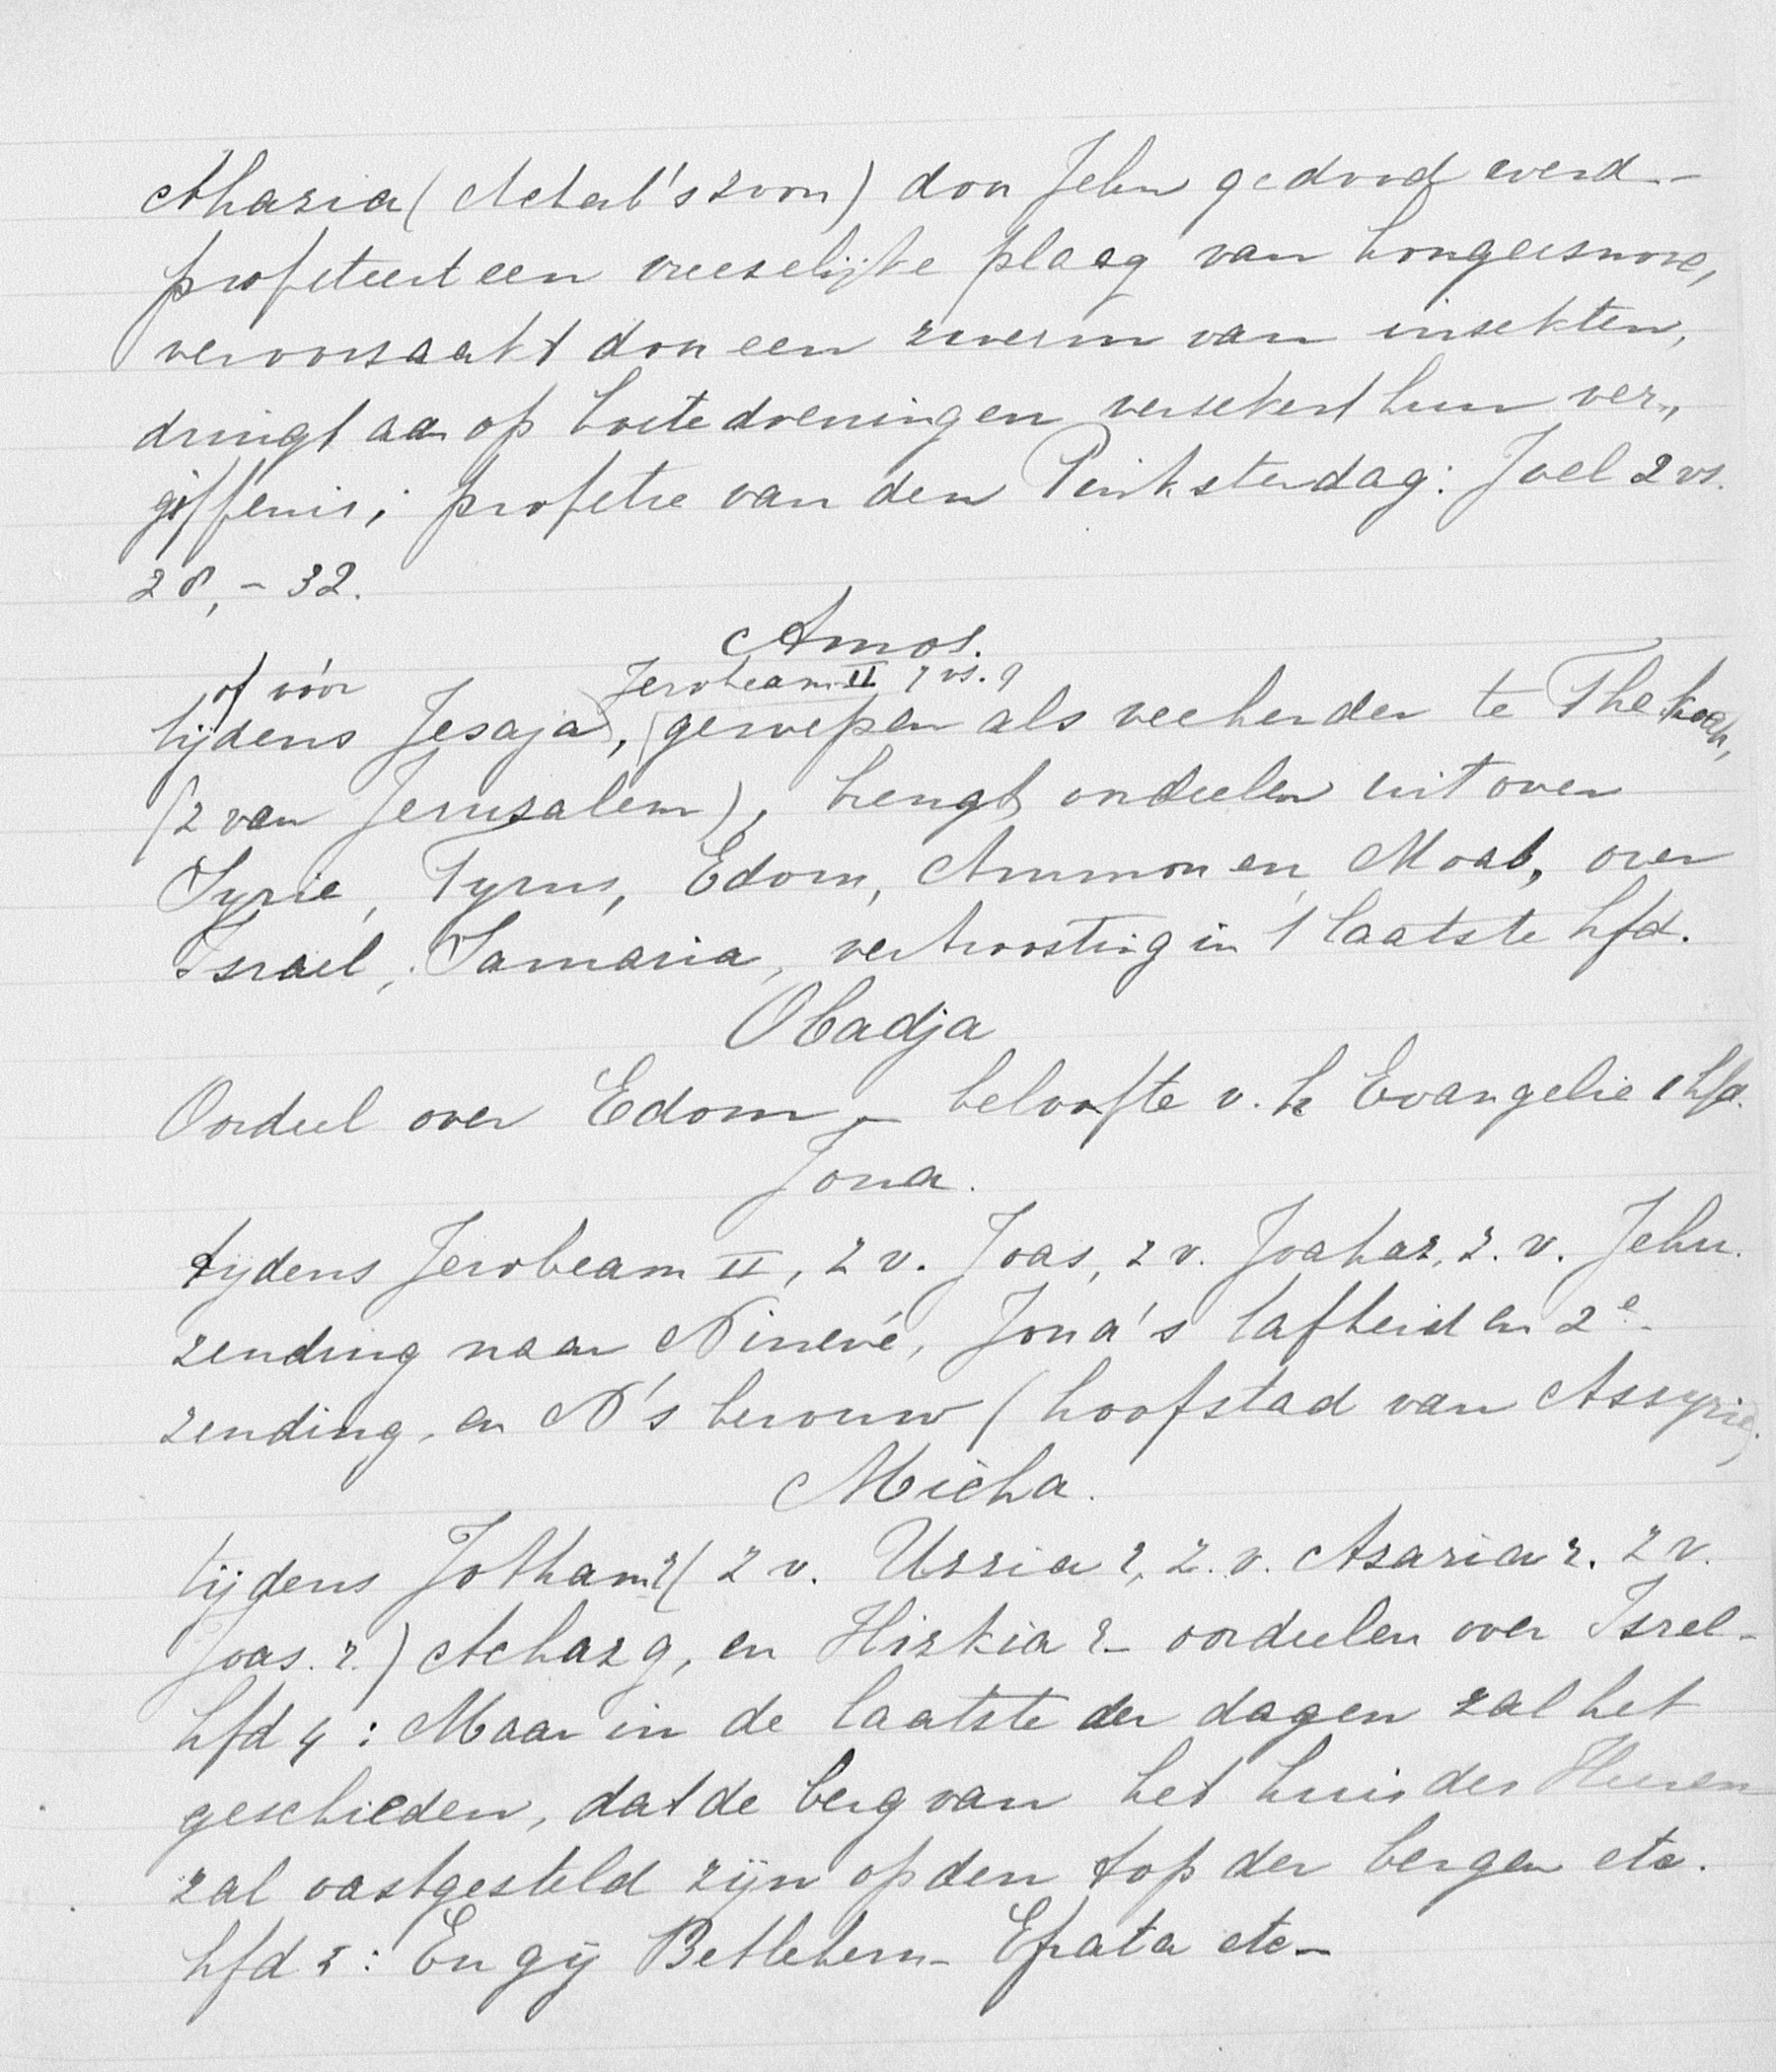 Ahazia (Achab's zoon) door Jehu gedood werd –
profeteert een vreeselijke plaag van hongersnood,
veroorzaakt door een zwerm van insekten,
dringt aan op boetedoeningen verzekert hun ver„
giffenis; profetie van den Pinksterdag: Joel 2 vs.
28, – 32.
Amos.
of vóór Jerobeam II 7 vs. 9
tijdens Jesaja, geroepen als veeherder te Thekoah,
(z van Jerusalem), brengt oordeelen uit over
Syrie, Tyrus, Edom, Ammon en Moab, over
Israel, Samaria, vertroosting in 't laatste hfd.
Obadja
Oordeel over Edom – belofte v. h Evangelie 1 hfd.
Jona.
tijdens Jerobeam II, z v. Joas, z v. Joahaz, z. v. Jehu.
zending naar Ninevé, Jona's lafheid en 2e
zending, en N's berouw (hoofstad van Assyrie).
Micha.
tijdens Jotham r (z v. Uzzia r, z. v. Azaria r. z v.
Joas. r.) Achaz g, en Hizkia r – oordeelen over Isrel –
hfd 4: Maar in de laatste der dagen zal het
geschieden, dat de berg van het huis des Heeren
zal vastgesteld zijn op den top der bergen etc.
hfd 5: En gij Betlehem – Efrata etc –